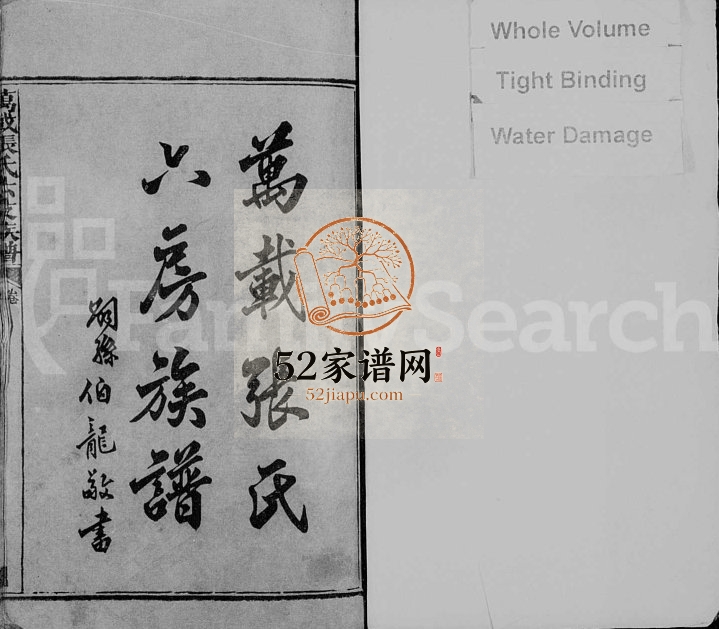 Whole Volume
Tight Binding
Water Damage
萬載張氏
六房族譜
嗣孫伯龍敬書
萬載張氏六支族譜
卷
FamilySearch
52家谱网
52jiapu.com